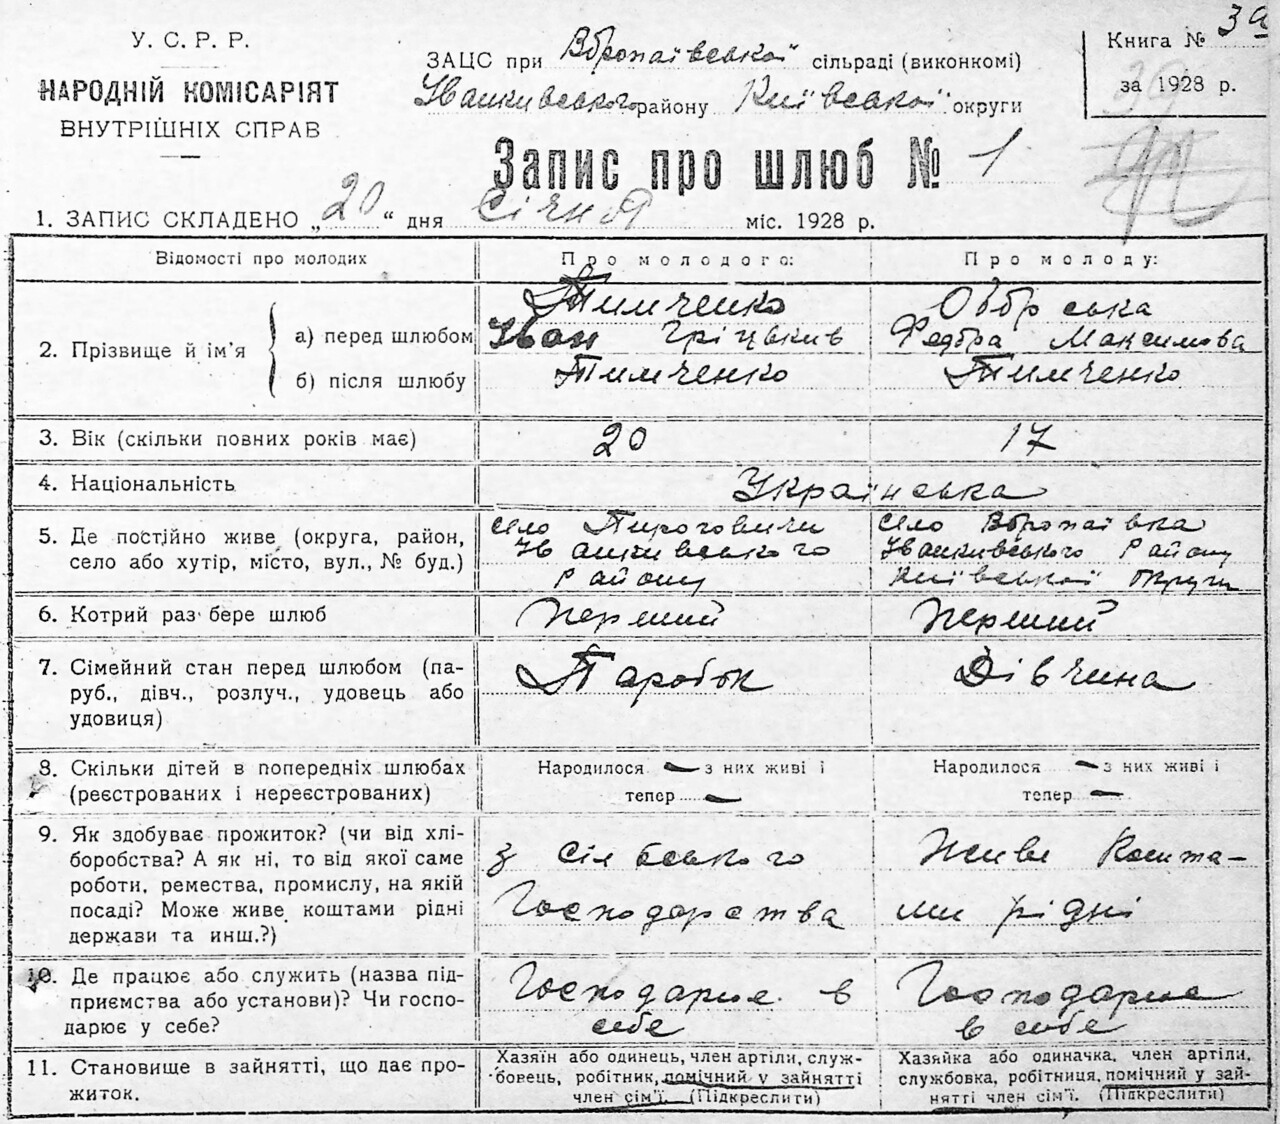 У. С. Р. Р.
НАРОДНІЙ КОМІСАРІЯТ
ВНУТРІШНІХ СПРАВ
ЗАЦС при сільраді (виконкомі)
Іванкивського району Київської округи
Книга №
за 1928 р.
Запис про шлюб № 1
1. ЗАПИС СКЛАДЕНО „20“ дня Січня міс. 1928 р.
Відомості про молодих
Про молодого:
Про молоду:
2. Прізвище й ім’я
а) перед шлюбом
б) після шлюбу
Тимченко
Іван Гріцькив
Тимченко
Федора Максимова
Тимченко
3. Вік (скільки повних років має)
20
17
4. Національність
Українська
5. Де постійно живе (округа, район,
село або хутір, місто, вул., № буд.)
село Пироговичи
Іванкивського
Району
село
Іванкивського Району
Київської Округи
6. Котрий раз бере шлюб
Перший
Перший
7. Сімейний стан перед шлюбом (па-
руб., дівч., розлуч., удовець або
удовиця)
Паробок
Дівчина
8. Скільки дітей в попередніх шлюбах
(реєстрованих і нереєстрованих)
Народилося — з них живі і
тепер —
Народилося — з них живі і
тепер —
9. Як здобуває прожиток? (чи від хлі-
боробства? А як ні, то від якої саме
роботи, ремества, промислу, на якій
посаді? Може живе коштами рідні
держави та инш.?)
з Сільського
Господарства
Живе Кошта-
ми рідні
10. Де працює або служить (назва під-
приємства або установи)? Чи госпо-
дарює у себе?
Господарює в
себе
Господарює
в себе
11. Становище в зайнятті, що дає про-
житок.
Хазяїн або одинець, член артіли, служ-
бовець, робітник, помічний у зайнятті
член сім’ї. (Підкреслити)
Хазяйка або одиначка, член артіли,
службовка, робітниця, помічний у зай-
нятті член сім’ї. (Підкреслити)